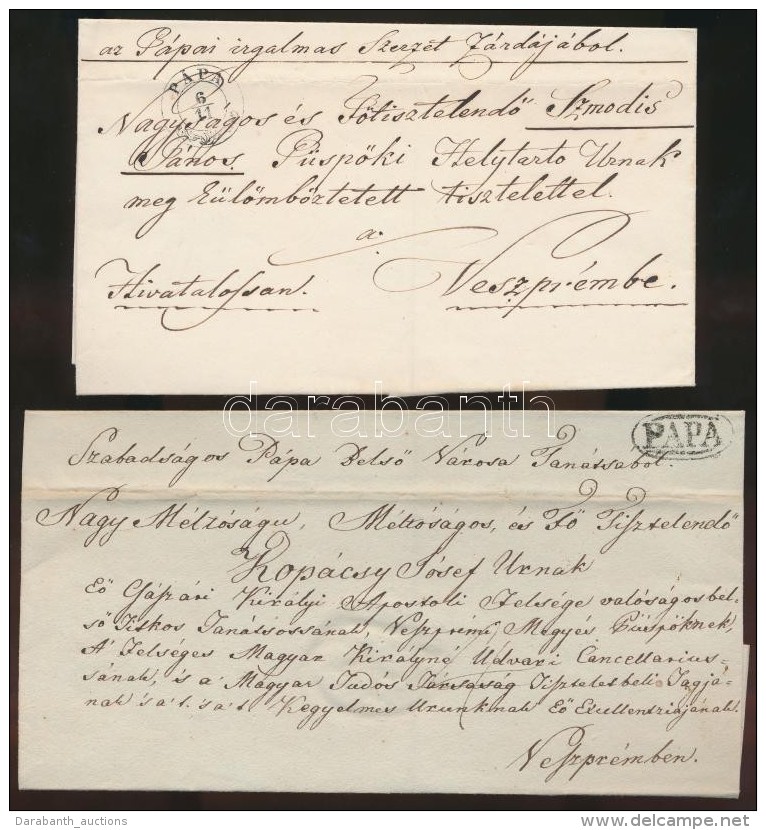 az Pápai irgalmas Szerzet Zárdájábol.
PÁPA
6
11
Nagyságos és Fötisztelendö Szmodis
János. Püspöki Helytarto Urnak
meg külömböztetett tisztelettel.
a:
Hivatalossan. Veszprémbe.
darabanth
PAPA
Szabadságos Pápa Belső Városa Tanátsabol.
Nagy Méltóságu, Méltóságos, és Fő Tisztelendő
Kopácsy Jósef Urnak
Eő Császári Királyi Apostoli Felsége valóságos bel-
ső Titkos Tanátsossának, Veszprémi Megyés Püspöknek,
A' Felséges Magyar Királyné Udvari Cancellarius-
sának, és a' Magyar Tudós Társaság Tiszteletbeli Tagjá-
nak 's a' t. 's a' t. Kegyelmes Urunknak Eő Excellentziájának.
Veszprémben.
Darabanth_auctions
delcampe.net